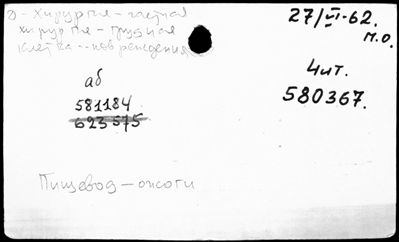 Д - хирургия - частная
хирургия - грудная
клетка -- повреждения
27/VI-62.
М.О.
аб
Чит.
581184
580367.
623575
Пищевод — ожоги